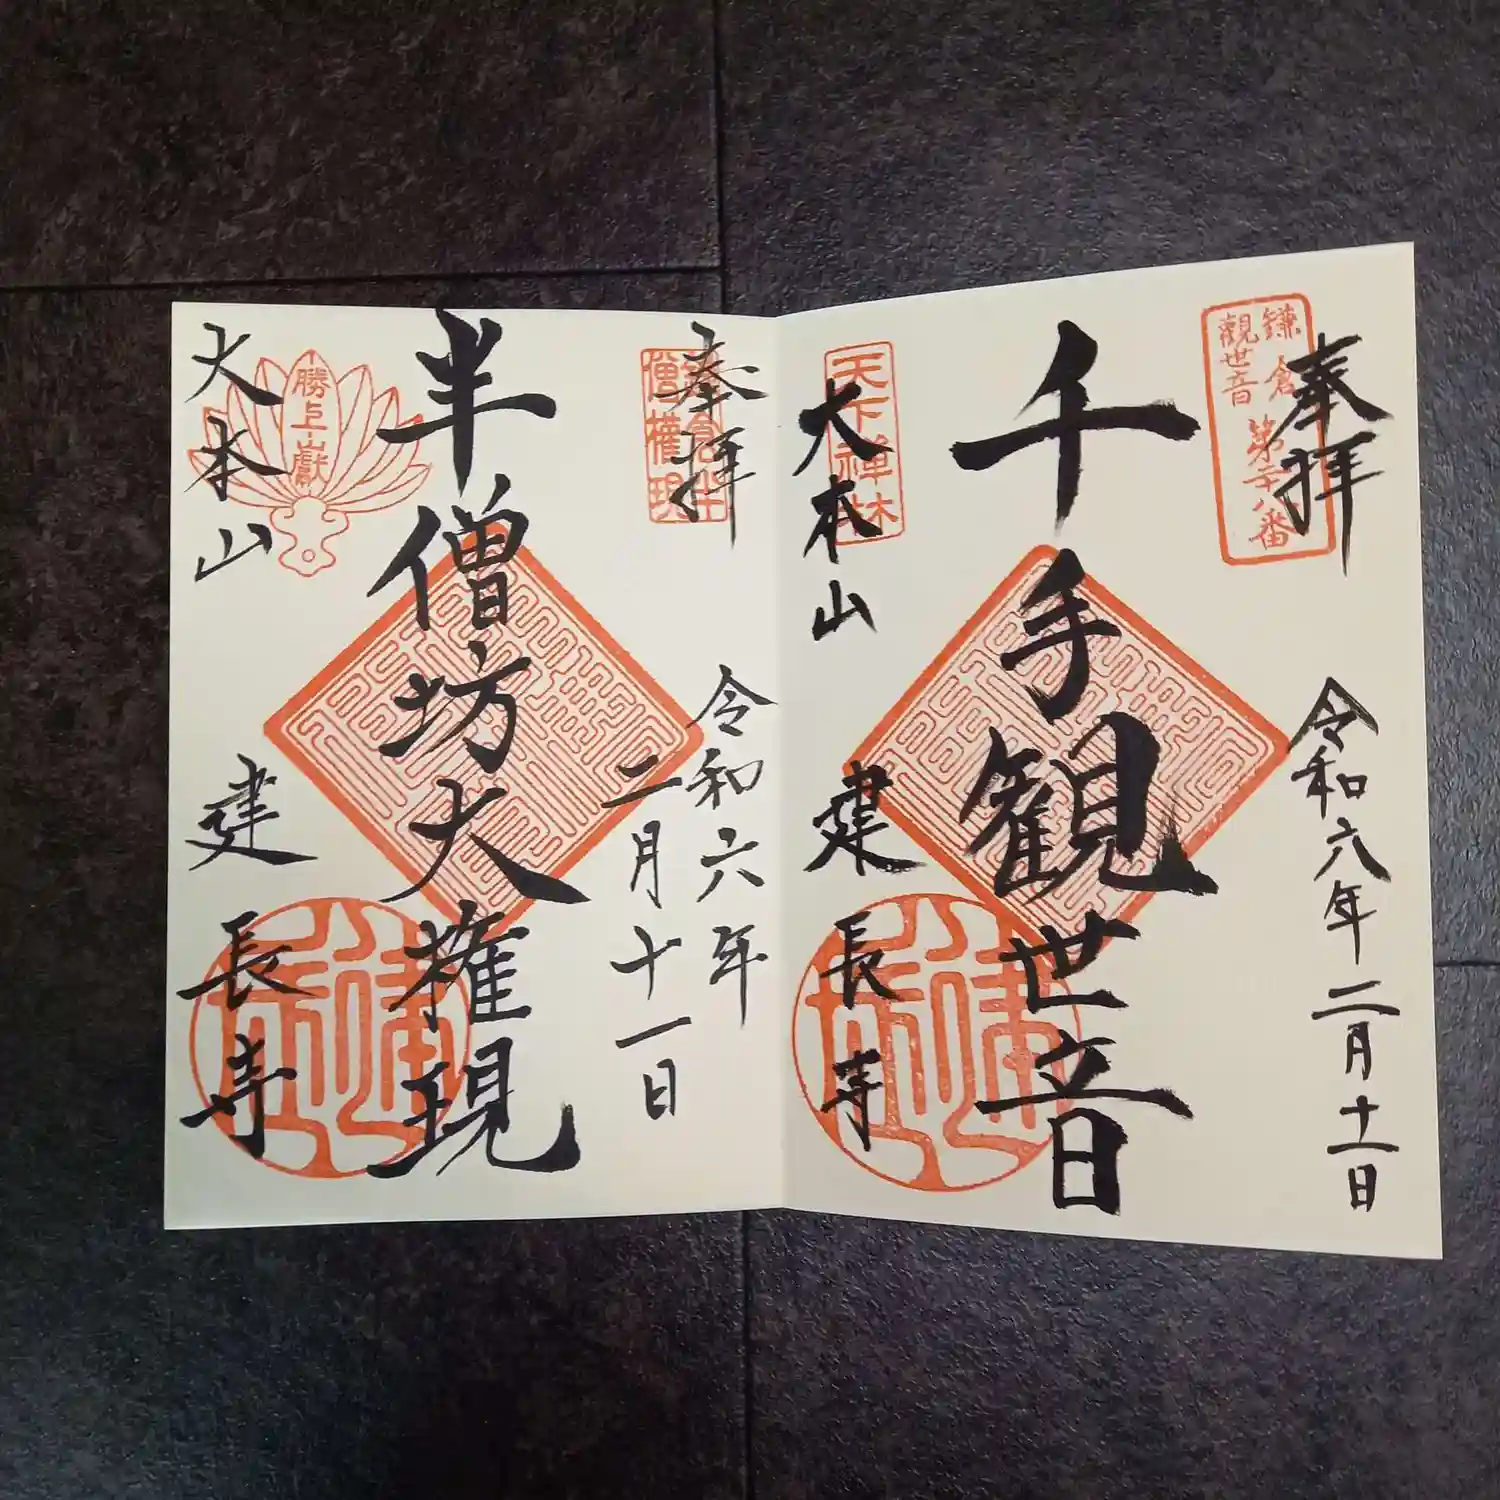 奉拝
令和六年二月十一日
鎌倉
觀世音
第二十八番
千手観世音
天下禅林
大本山
建長寺
奉拝
令和六年
二月十一日
僧權現
半僧坊大権現
勝上嶽
大本山
建長寺